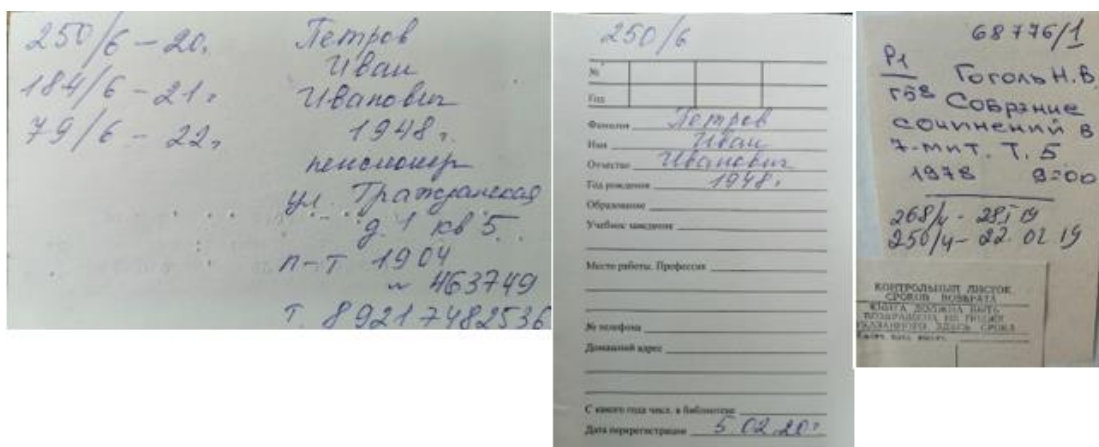 250/6 - 20г.
184/6 - 21г
79/6 - 22г
Петров
Иван
Иванович
1948г.
пенсионер
ул. Гражданская
д. 1 кв 5.
п-т 1904
№ 463749
т. 89217482536
250/6
№
Год
Фамилия Петров
Имя Иван
Отчество Иванович
Год рождения 1948г.
Образование
Учебное заведение
Место работы. Профессия
№ телефона
Домашний адрес
С какого года числ. в библиотеке
Дата перерегистрации 5.02.20г
68776/1
Р1
Г58
Гоголь Н.В.
Собрание
сочинений в
7-ми т. Т. 5
1978 9=00
268/4 - 28.I 19
250/4 - 22.02.19
КОНТРОЛЬНЫЙ ЛИСТОК
СРОКОВ ВОЗВРАТА
КНИГА ДОЛЖНА БЫТЬ
ВОЗВРАЩЕНА НЕ ПОЗЖЕ
УКАЗАННОГО ЗДЕСЬ СРОКА